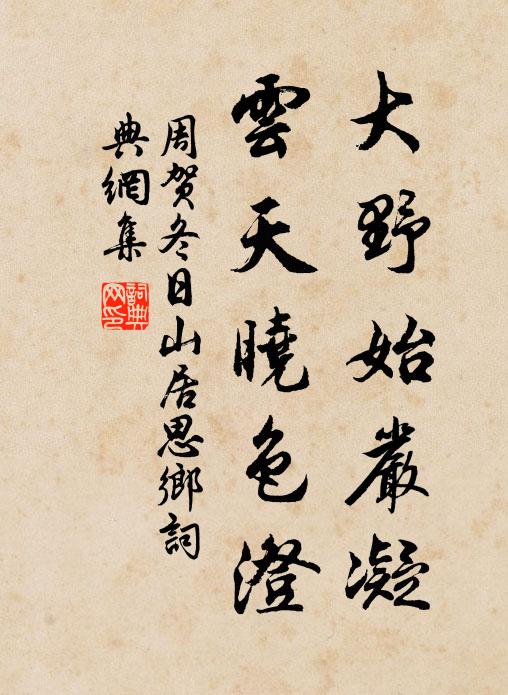 大野始嚴凝
雲天曉色澄
周贺冬日山居思鄉詞
典網集
詞典
网印